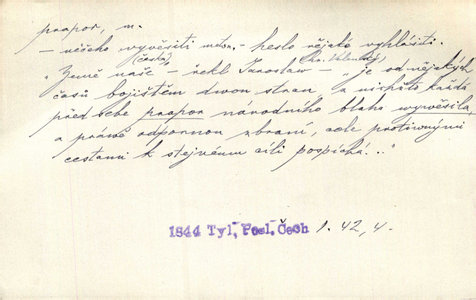 prapor, m.
— něčeho vyvěsiti meton. – heslo nějaké vyhlásiti.
(česká) (hr. Valečský)
"Země naše — řekl Jaroslav — "je od nějakých
časů bojištěm dvou stran, a nichžto každá
před sebe prapor národního blaha vyvěsila,
a právě odpornou zbraní, ale protivnými
cestami k stejnému cíli pospíchá..."
1844 Tyl, Posl. Čech 1. 42, 4.